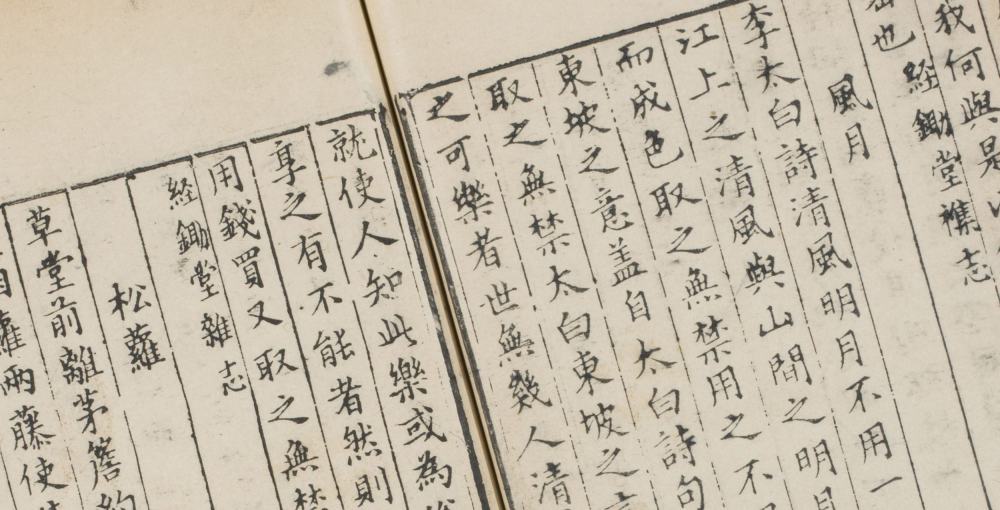 我何與是
也 経鋤堂襍志
風月
李太白詩清風明月不用一
江上之清風與山間之明月
而成色取之無禁用之不
東坡之意盖自太白詩句
取之無禁太白東坡之
之可樂者世無幾人清
就使人知此樂或為
享之有不能者然則
用錢買又取之無禁
経鋤堂雜志
松蘿
草堂前離茅簷約
蘿兩藤使